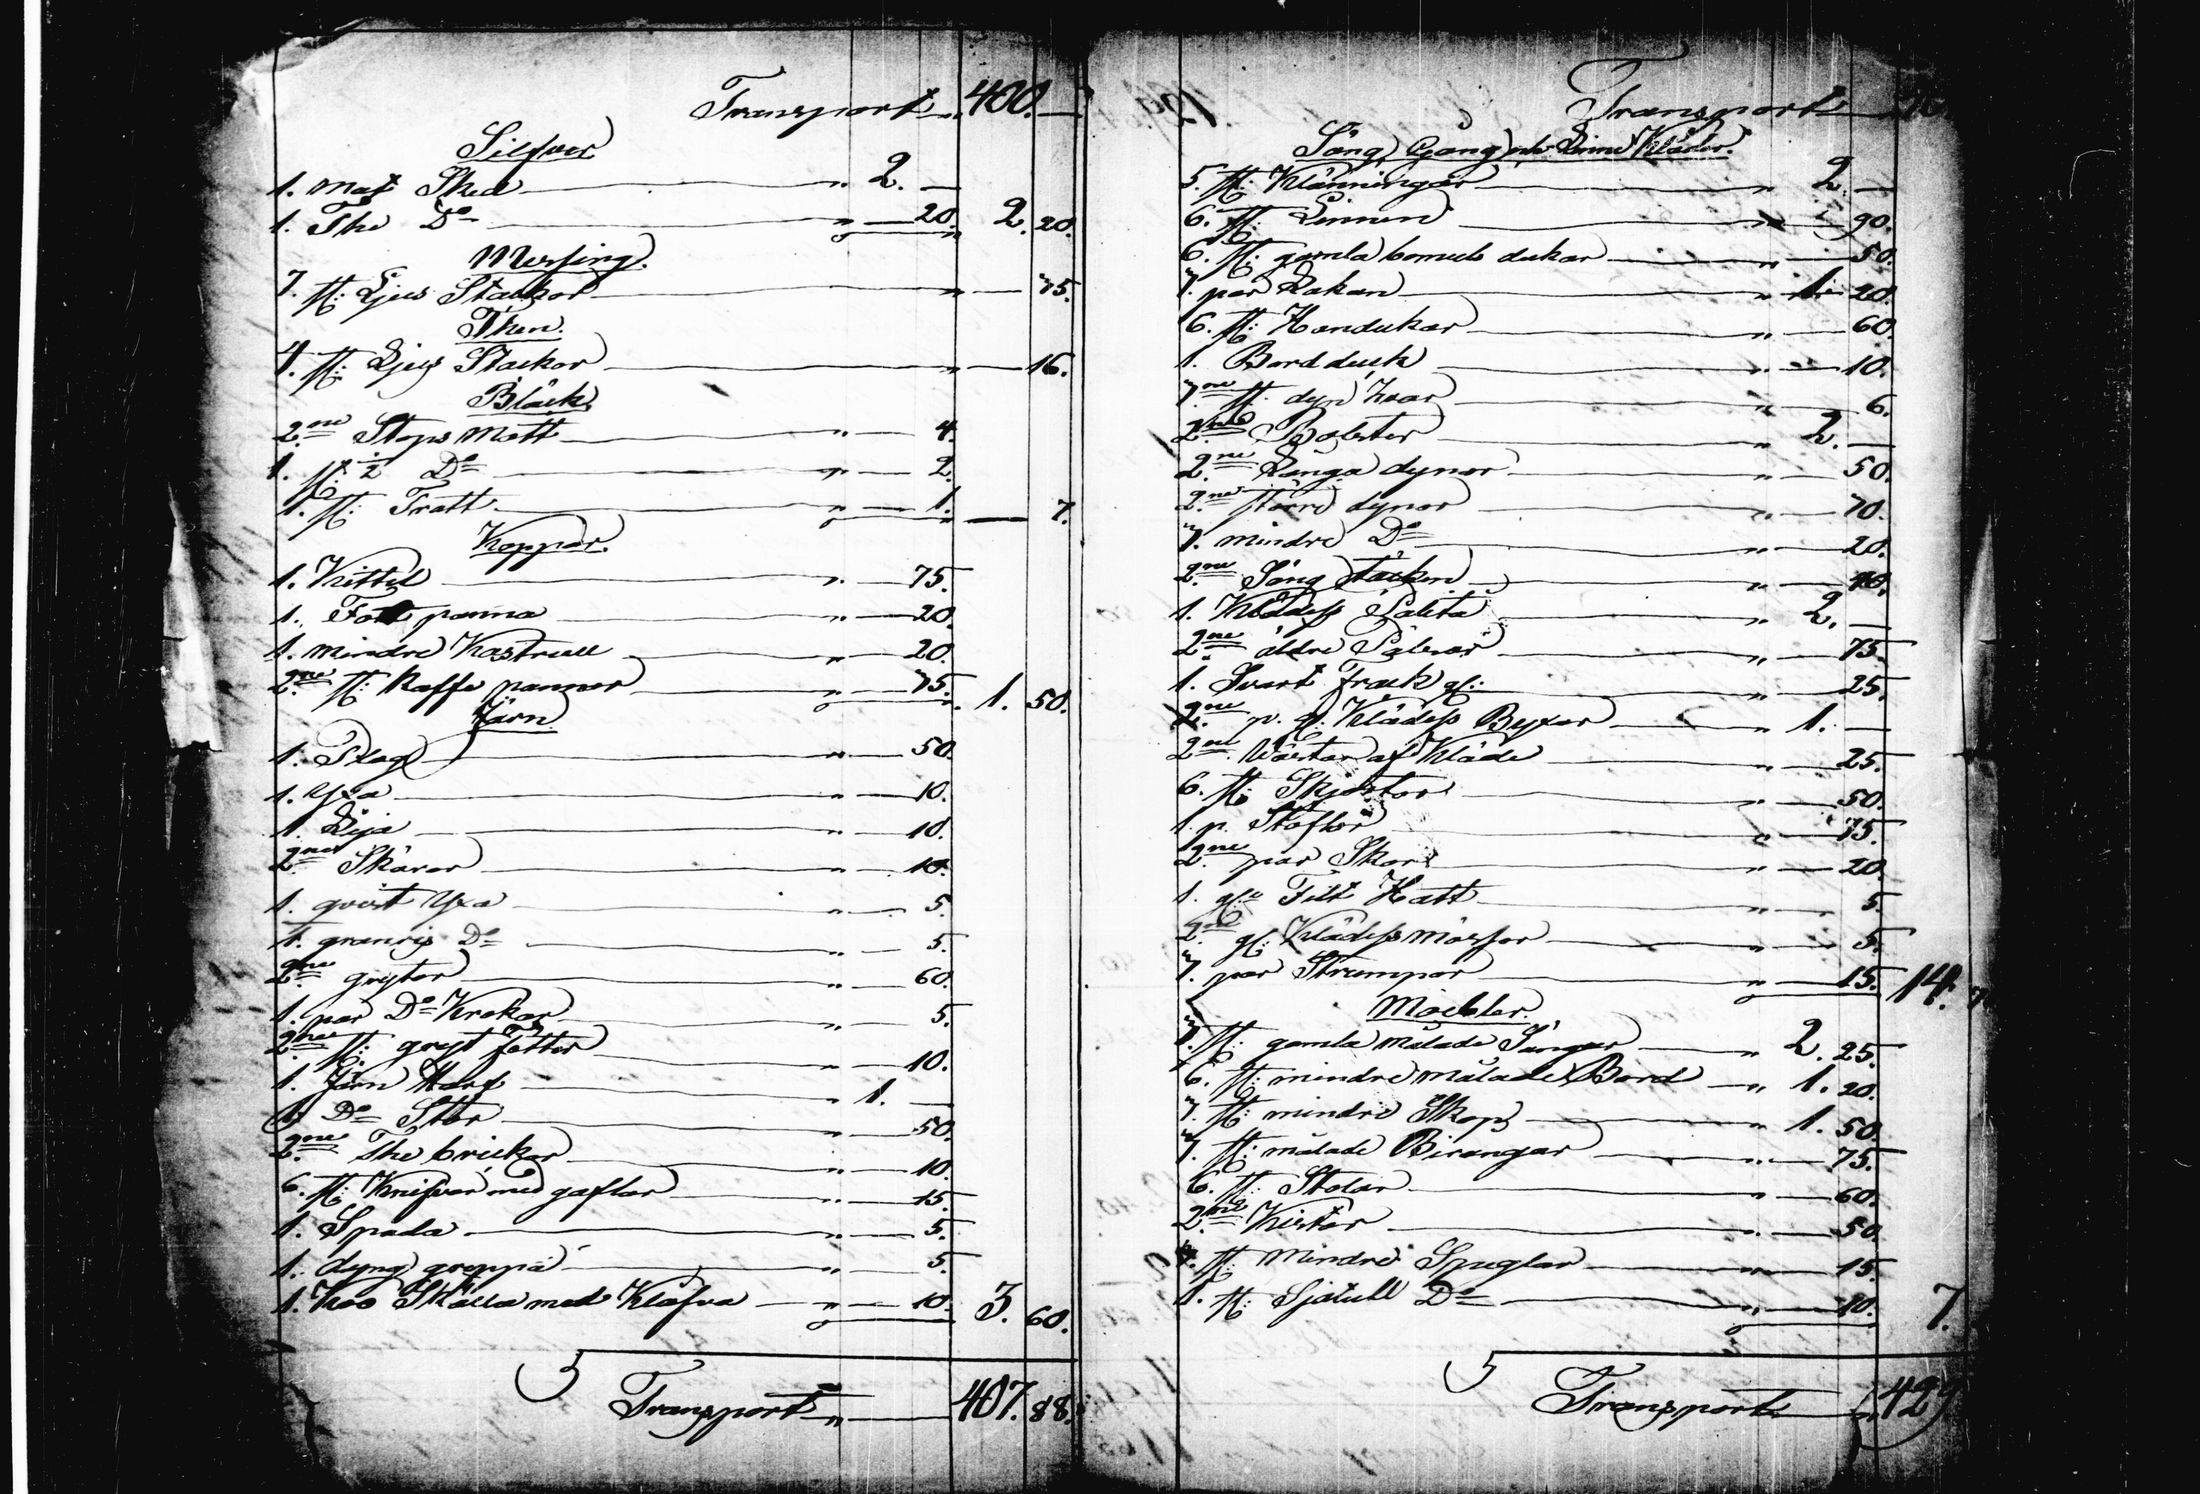 Transport „ 400. —
Silfver
1. mat Sked „ 2. —
1. The Do „ — 20. 2. 20.
Messing.
7. st: Ljus Stackor „ — 75.
Then.
4. st: Ljus Stackor „ — 16.
Bläck
2ne Stops Mått „ — 4.
1. st. ½ Do „ — 2.
1. st: Tratt „ — 1. — 7.
Koppar.
1. Kittel „ — 75.
1. panna „ — 20.
1. mindre Kastrull „ — 20.
2ne st: Kaffe pannor „ — 75. 1. 50.
Järn
1. Plog „ — 50.
1. Yxa „ — 10.
1. Lija „ — 10.
2ne Skäror „ — 10.
1. qvist Yxa „ — 5.
1. granris Do „ — 5.
2ne grytor „ — 60.
1. par Do Krokar „ — 5.
2ne st: gryt Fötter „ — 10.
1. Järn Harf „ 1. —
1. Do Stör „ — 50.
2ne The brickor „ — 10.
6. st: Knifvar med gaflar „ — 15.
1. Spada „ — 5.
1. dyng greppa „ — 5.
1. Koo Skälla med Klafva „ — 10. 3. 60.
Transport „ — 407. 88.
Transport
Säng, Gång och Linne Kläder.
5. st: Klänningar „ 2. —
6. st: Linnen „ 90.
6. st: gamla bomuls dukar „ — 50.
7. par Lakan „ 1. 20.
6. st: Handukar „ — 60.
1. Bordduk „ — 10.
7ne st: dyn Var „ — 6.
2ne Bolster „ 2. —
2ne Långa dynor „ — 50.
2ne större dynor „ — 70.
7. mindre Do „ — 20.
2ne Säng täcken „ —
1. Klädes Palitå „ 2. —
2ne äldre „ — 75.
1. Svart Frack gl: „ — 25.
2ne p. gl: Klädes Byxor „ 1. —
2ne Västar af Kläde „ — 25.
6. st: Skjortor „ — 50.
1. p. Stöflor „ — 75.
2ne par Skor „ — 20.
1. gl: Filt Hatt „ — 5.
2ne gl: Klädes mössor „ — 5.
7. par Strumpor „ — 15. 14.
Moebler.
st: gamla målade Sängar „ 2. 25.
6. st: mindre målade Bord „ 1. 20.
7. st: mindre Skop „ 1. 50.
7. st: målade „ — 75.
6. st: Stolar „ — 60.
2ne Kistor „ — 50.
st: mindre Speglar „ — 15.
1. st: Do „ — 7.
Transport „ 429